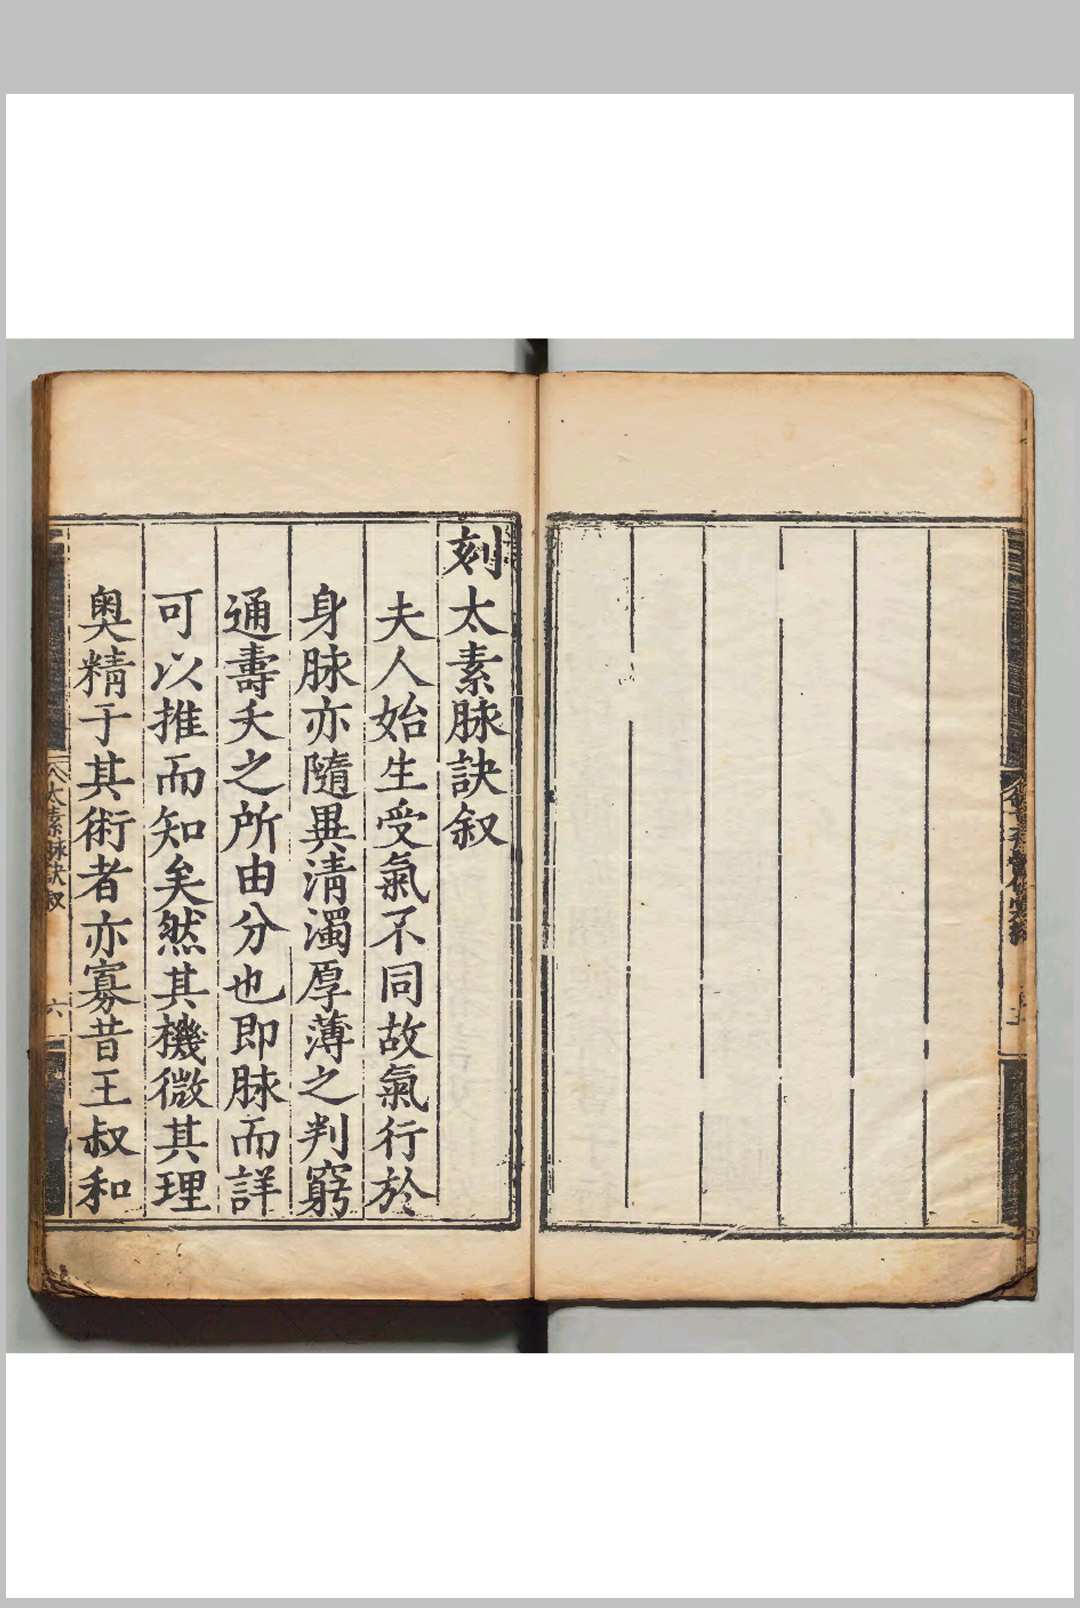 刻太素脉訣叙
夫人始生受氣不同故氣行於
身脉亦隨異清濁厚薄之判窮
通壽夭之所由分也即脉而詳
可以推而知矣然其機微其理
奧精于其術者亦寡昔王叔和
太素脉訣叙
六